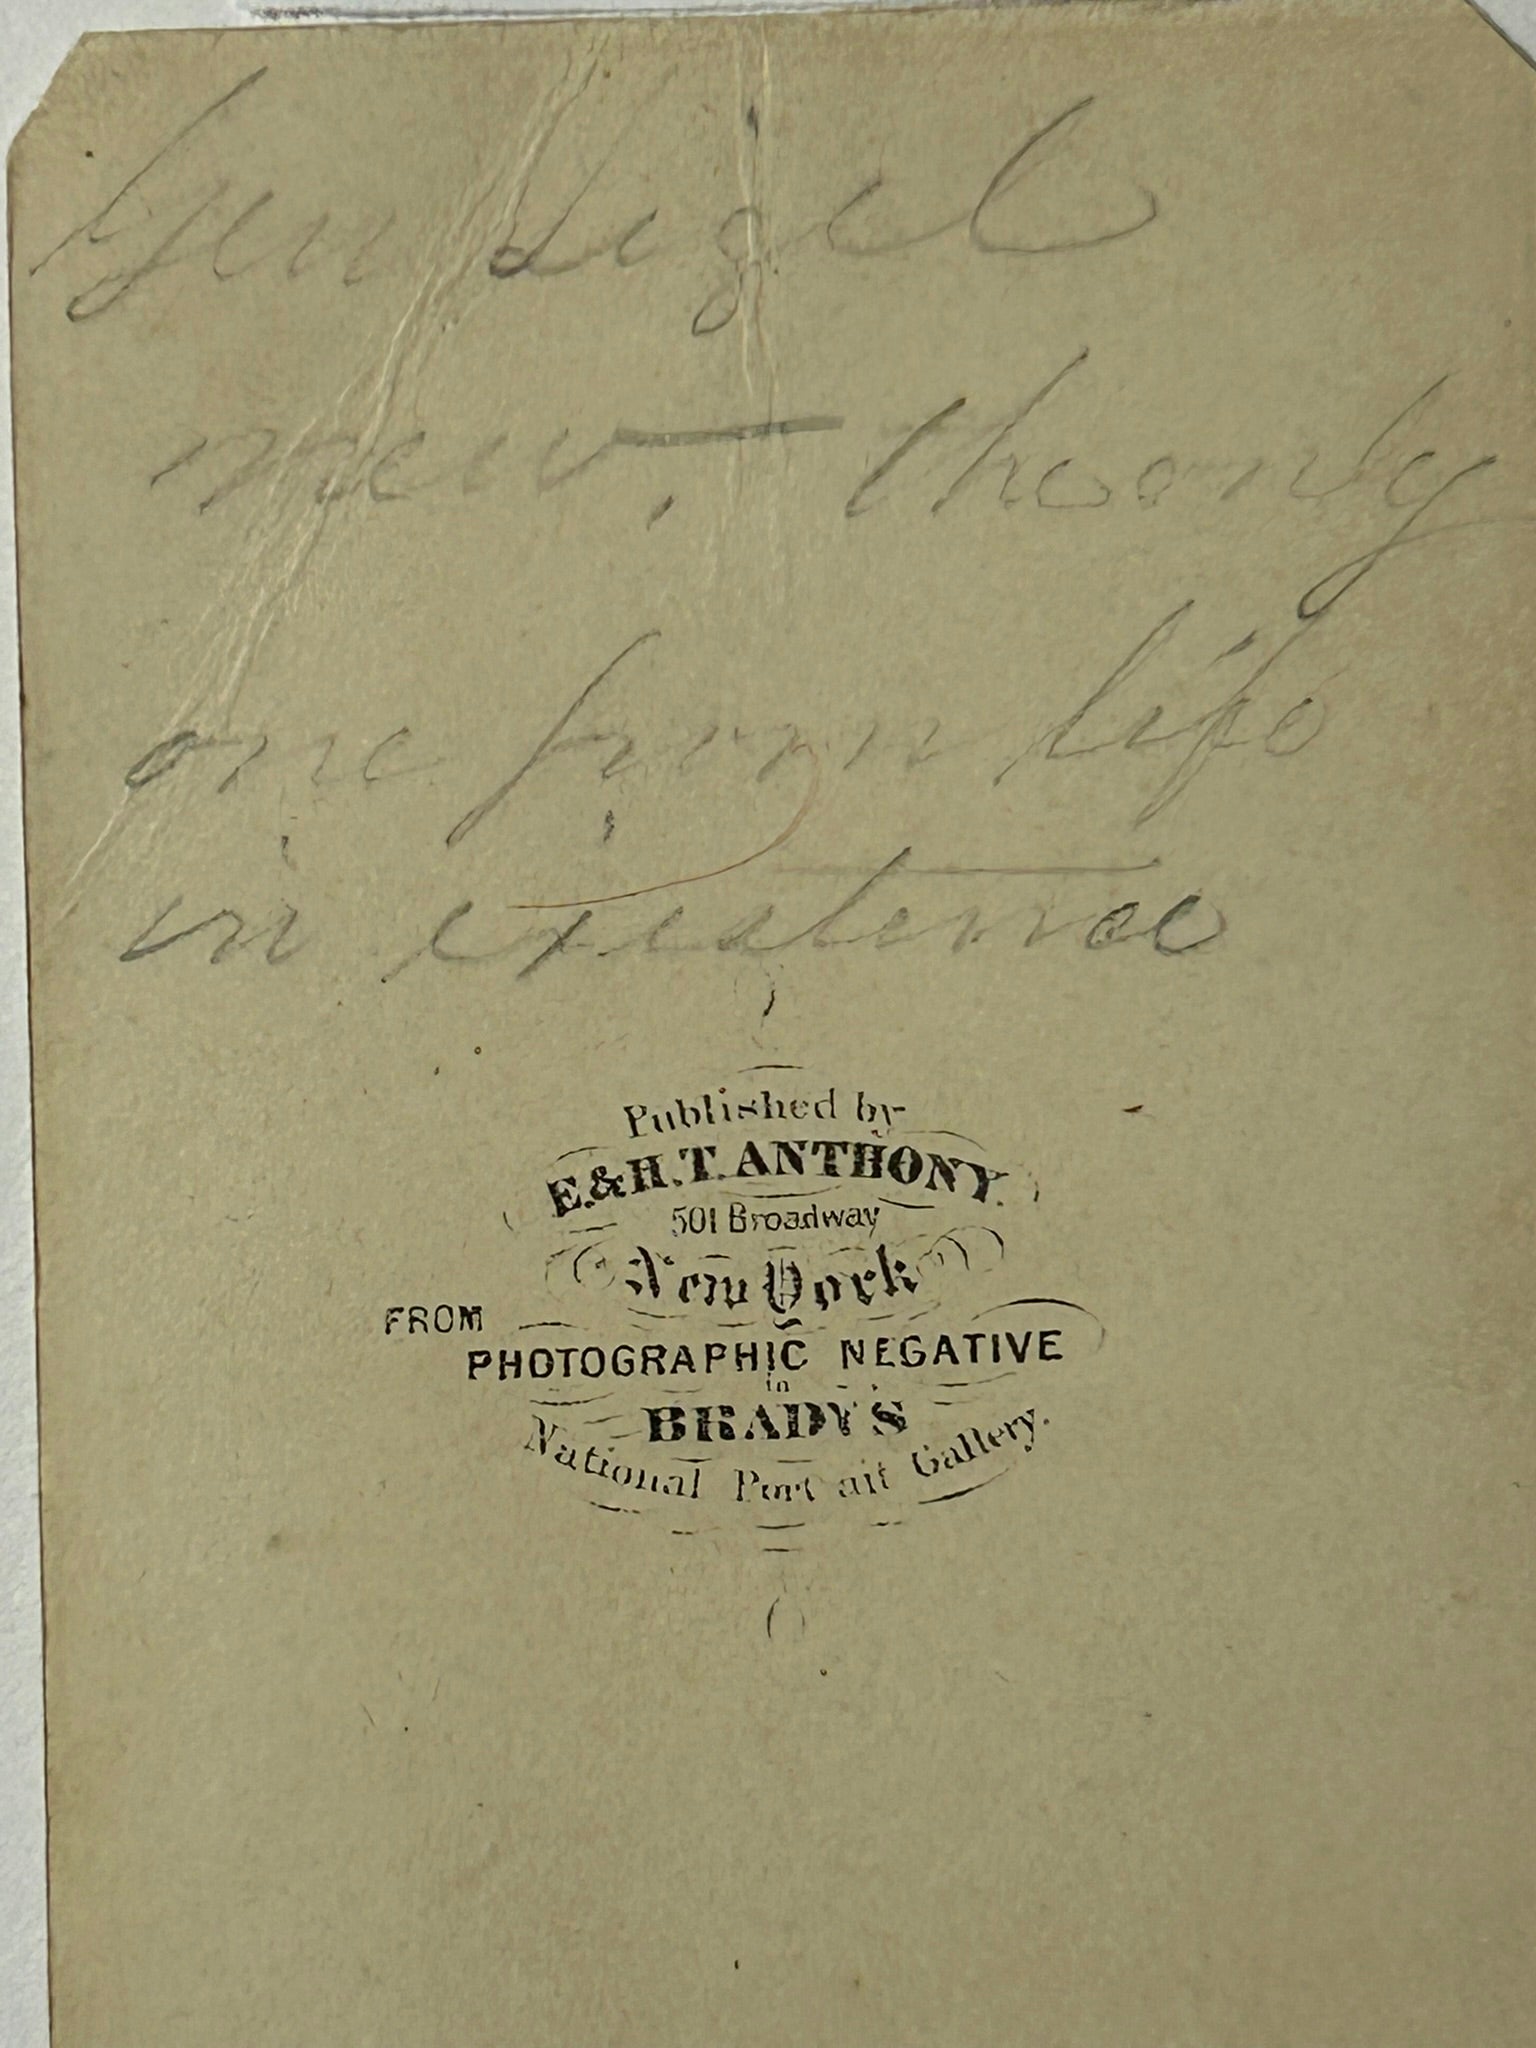 Gen Sigel
new. - the only
one from life
in existence
Published by
E. & H. T. ANTHONY.
501 Broadway
New York
FROM
PHOTOGRAPHIC NEGATIVE
in
BRADY'S
National Portrait Gallery.